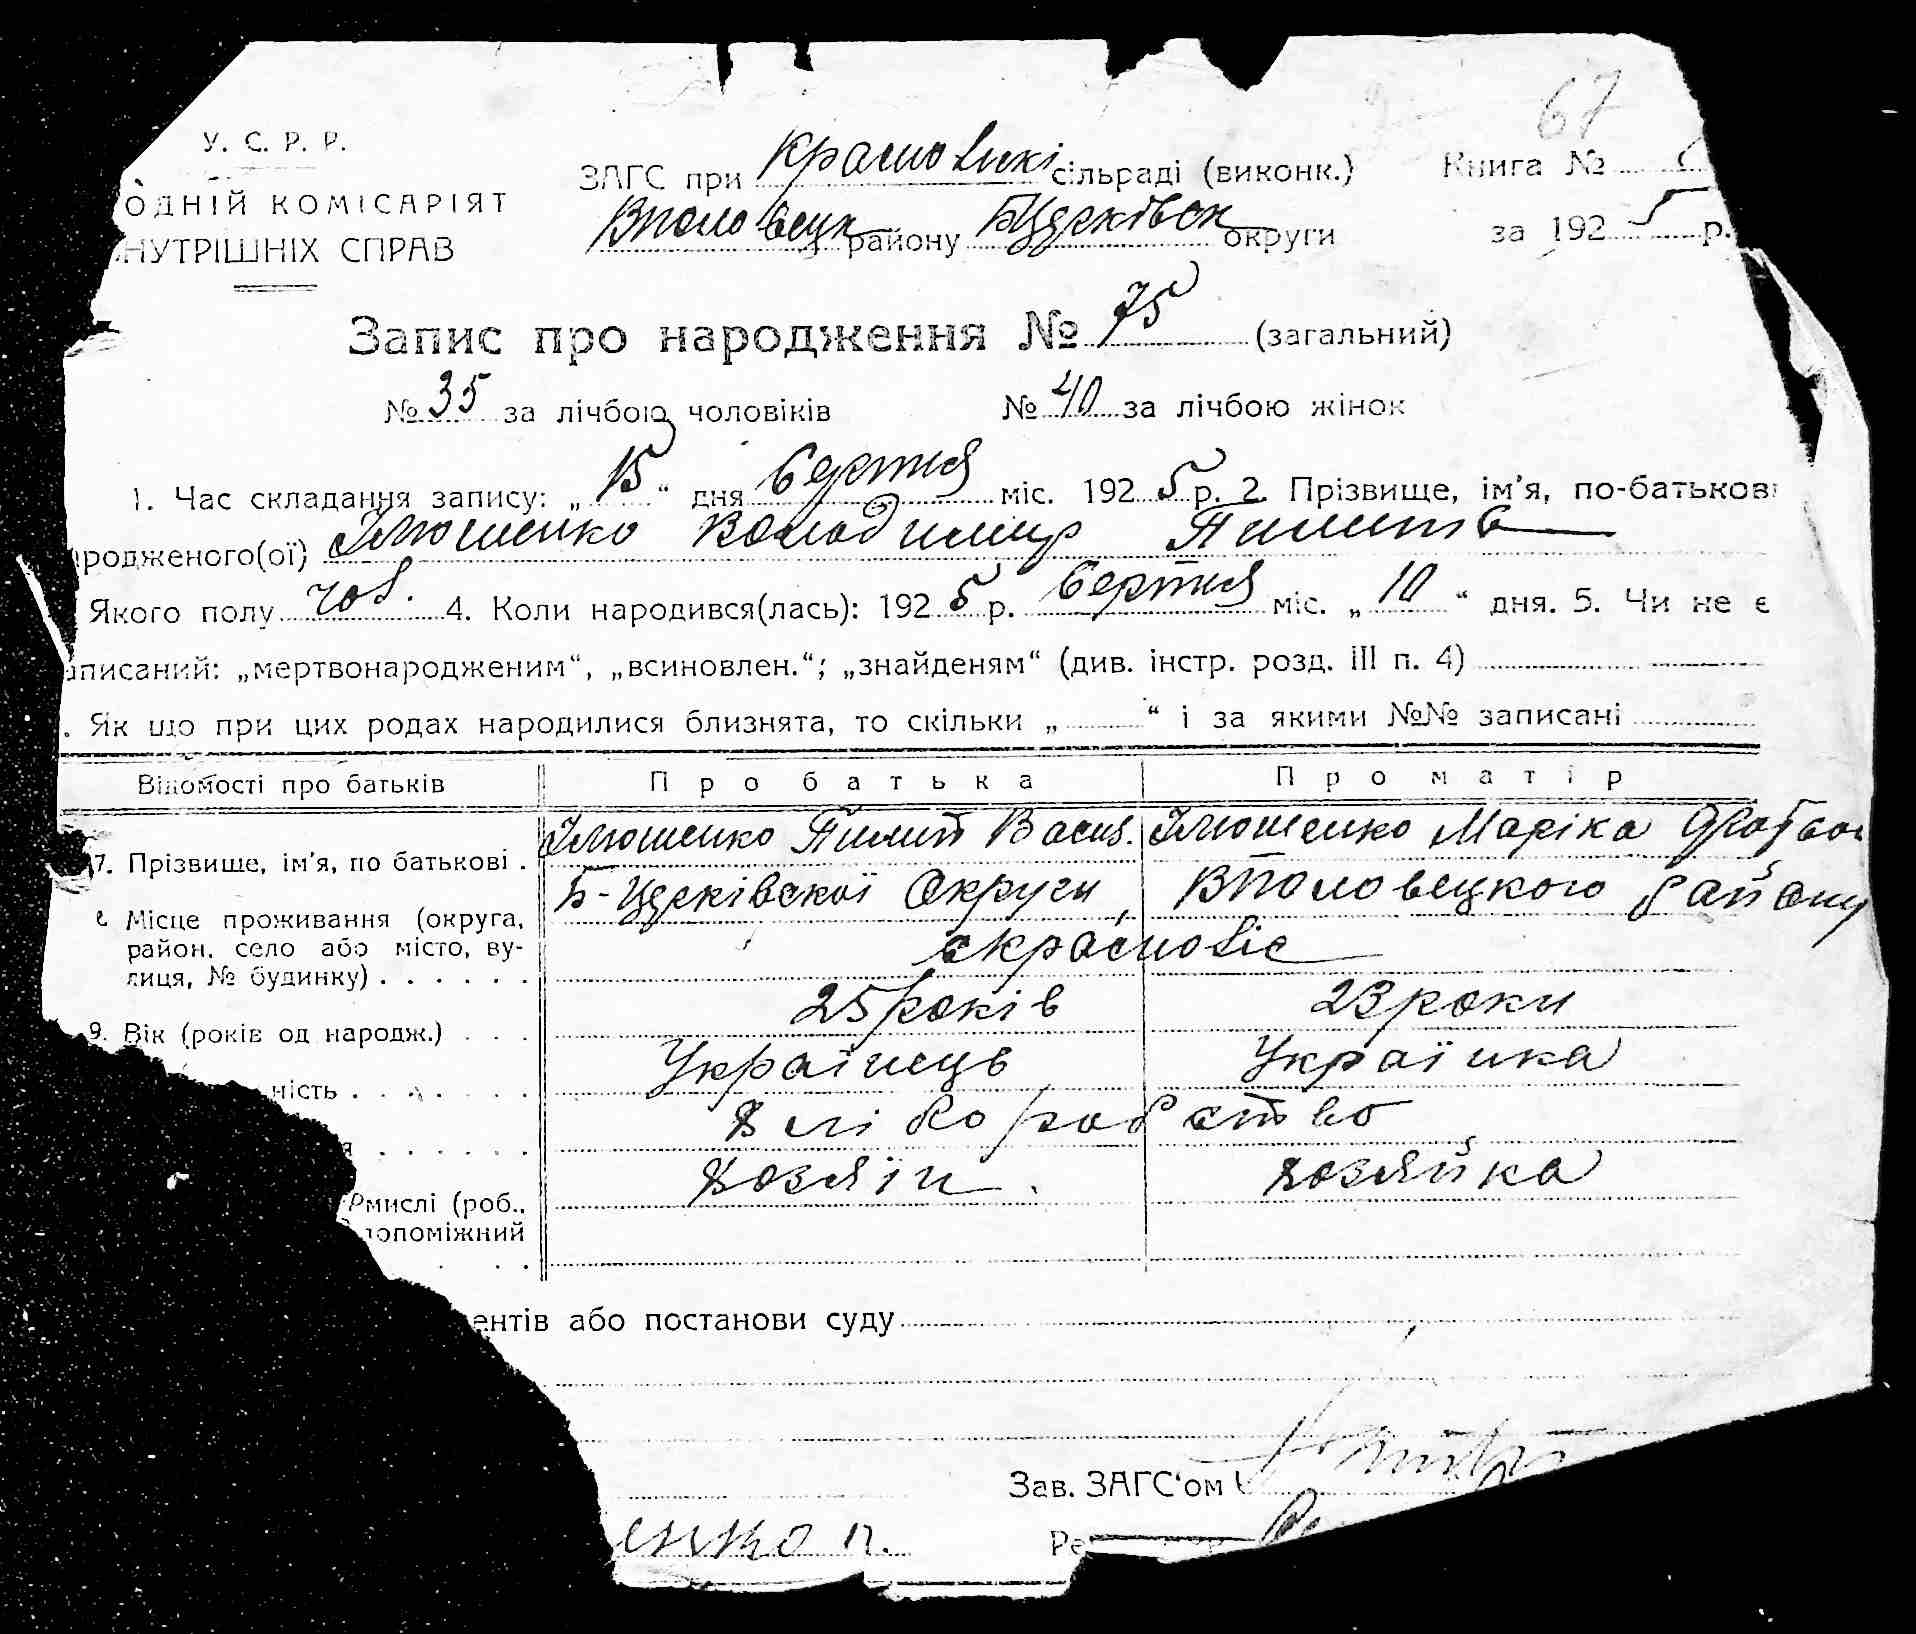 67
У. С. Р. Р.
ОДНІЙ КОМІСАРІЯТ
НУТРІШНІХ СПРАВ
ЗАГС при сільраді (виконк.)
Вполовецк району Бцерківск округи
Книга №
за 1925 р.
Запис про народження № 75 (загальний)
№ 35 за лічбою чоловіків № 40 за лічбою жінок
1. Час складання запису: „15“ дня Серпня міс. 1925 р. 2. Прізвище, ім'я, по-батькові
родженого(ої) Ілюшенко Володимир Пилипів
Якого полу чол. 4. Коли народився(лась): 1925 р. Серпня міс. „10“ дня. 5. Чи не є
аписаний: „мертвонародженим“, „всиновлен.“; „знайденям“ (див. інстр. розд. III п. 4)
. Як що при цих родах народилися близнята, то скільки „ “ і за якими №№ записані
Відомості про батьків Про батька Про матір
7. Прізвище, ім'я, по батькові . Ілюшенко Пилип Васил. Ілюшенко Маріка
Місце проживання (округа, район. село або місто, ву-
лиця, № будинку) . . . . . .
Б-Церківської Округи, Вполовецкого району
9. Вік (років од народж.) . . . 25 років 23 роки
ність . . . . . . . Українець Українка
я . . . . . . Хліборобство
мислі (роб.. Хозяїн. Хозяйка
допоміжний
. .
ентів або постанови суду
Зав. ЗАГС'ом
енко П.
Ре